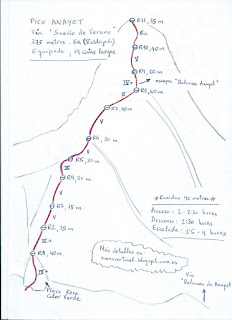 PICO ANAYET
Vía "Sueño de Verano"
375 metros - 6a (V obligado)
Equipada, 14 cintas
R11, 35 m
6a
R10, 40 m
V
R9, 20 m
IV+
escape "Balcones Anayet"
II
R8, 60 m
II
R7, 40 m
V
R6, 30 m
V
R5, 30 m
IV+
R4, 20 m
V
R3, 35 m
V
R2, 35 m
II+
R1, 40 m
III+
Placa Roca
Color Verde
*Cuerdas 42 metros*
Acceso: 2-2:30 horas
Descenso: 2:30 horas
Escalada: 3'5-4 horas
Más detalles en:
.blogspot.com.es
Vía
"Balcones de Anayet"